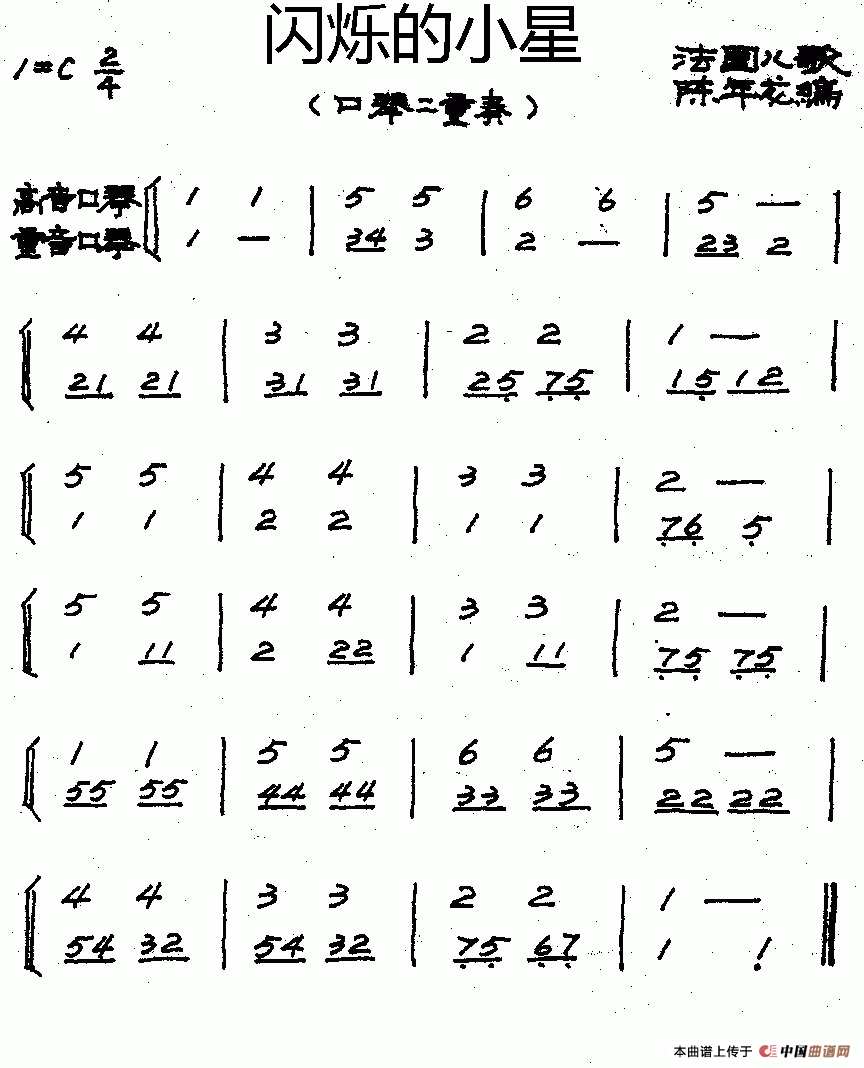 闪烁的小星
1=C 2/4
(口琴二重奏)
法国儿歌
陈年花编
高音口琴 1 1 | 5 5 | 6 6 | 5 — |
重音口琴 1 — | 34 3 | 2 — | 23 2 |
4 4 | 3 3 | 2 2 | 1 — |
21 21 | 31 31 | 25 75 | 15 12 |
5 5 | 4 4 | 3 3 | 2 — |
1 1 | 2 2 | 1 1 | 76 5 |
5 5 | 4 4 | 3 3 | 2 — |
1 11 | 2 22 | 1 11 | 75 75 |
1 1 | 5 5 | 6 6 | 5 — |
55 55 | 44 44 | 33 33 | 22 22 |
4 4 | 3 3 | 2 2 | 1 — ‖
54 32 | 54 32 | 75 67 | 1 1 ‖
本曲谱上传于 中国曲谱网